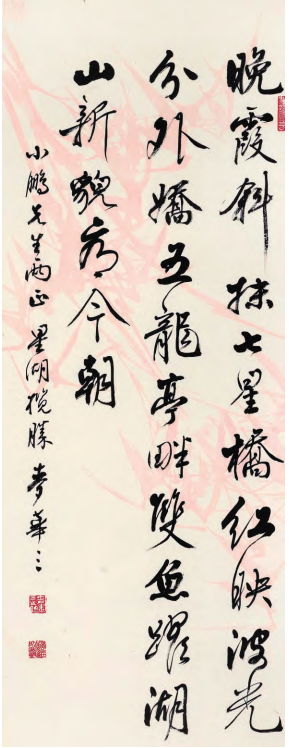 晚霞斜抹七星橋紅映波光
分外嬌五龍亭畔雙魚躍湖
山新貌看今朝
小鵬先生兩正 星湖攬勝 麥華三